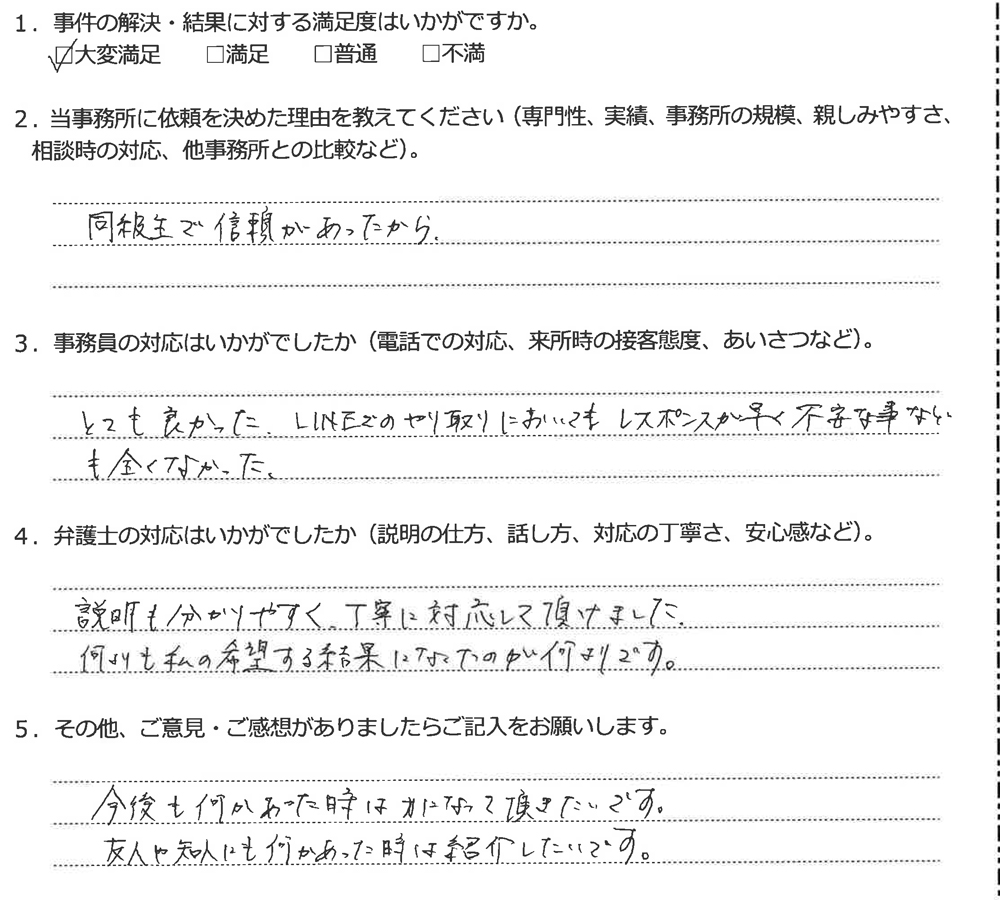 1．事件の解決・結果に対する満足度はいかがですか。
☑大変満足　□満足　□普通　□不満
2．当事務所に依頼を決めた理由を教えてください（専門性、実績、事務所の規模、親しみやすさ、
相談時の対応、他事務所との比較など）。
同級生で信頼があったから.
3．事務員の対応はいかがでしたか（電話での対応、来所時の接客態度、あいさつなど）。
とても良かった、LINEでのやり取りにおいてもレスポンスが早く不安な事など
も全くなかった。
4．弁護士の対応はいかがでしたか（説明の仕方、話し方、対応の丁寧さ、安心感など）。
説明も分かりやすく、丁寧に対応して頂けました.
何よりも私の希望する結果になったのが何よりです。
5．その他、ご意見・ご感想がありましたらご記入をお願いします。
今後も何かあった時は力になって頂きたいです。
友人や知人にも何かあった時は紹介したいです。